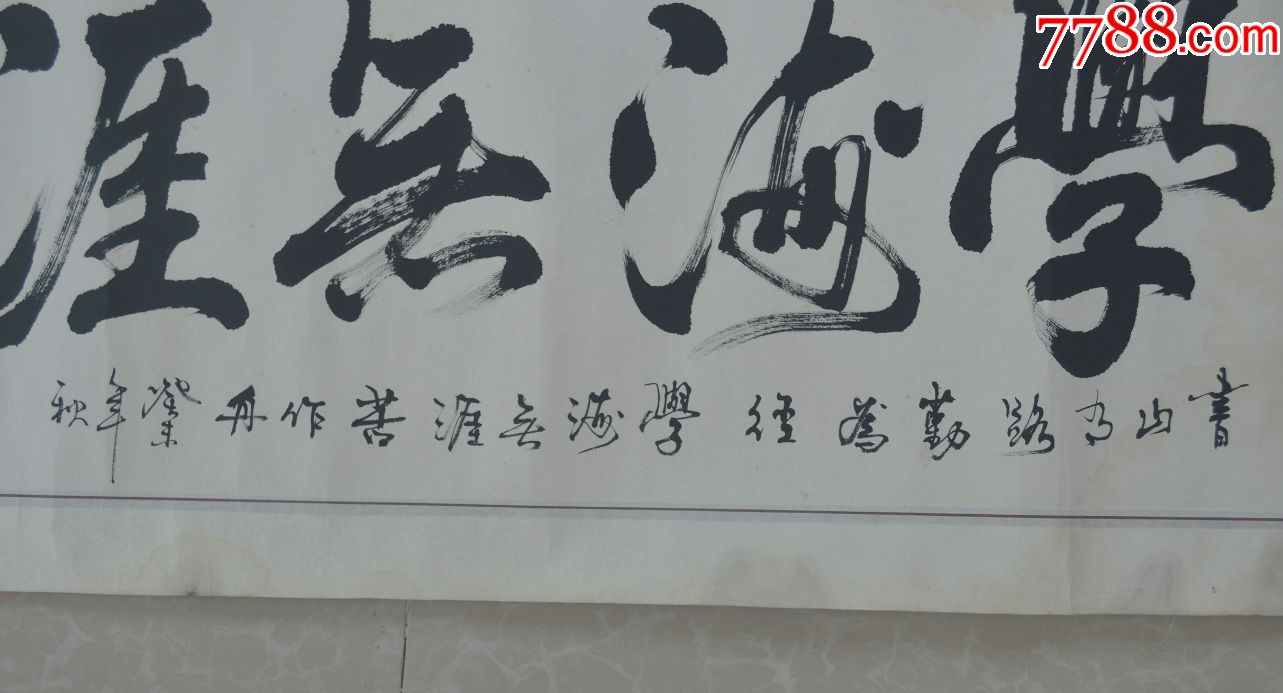 7788.com
學海无涯
書山有路勤為径學海无涯苦作舟癸未年秋